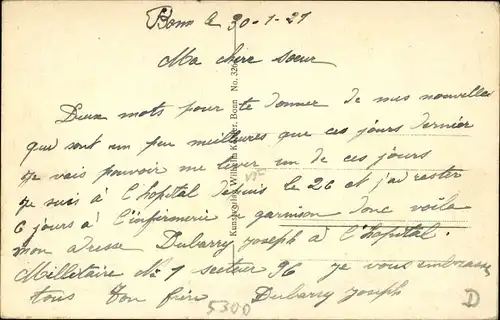 Bonn le 30-1-21
Ma chere soeur
Deux mots pour te donner de mes nouvelles
qui sont un peu meilleures que ces jours dernier
je vais pouvoir me lever un de ces jours
je suis à l'hopital depuis le 26 et j'ai rester
6 jours à l'infirmerie en garnison donc voila
mon adresse Dubarry joseph à l'hopital.
Millitaire No 1 secteur 96 je vous embrasse
tous ton frère Dubarry joseph
5300
D
Kunstverlag Wilhelm Köhler, Bonn No. 326